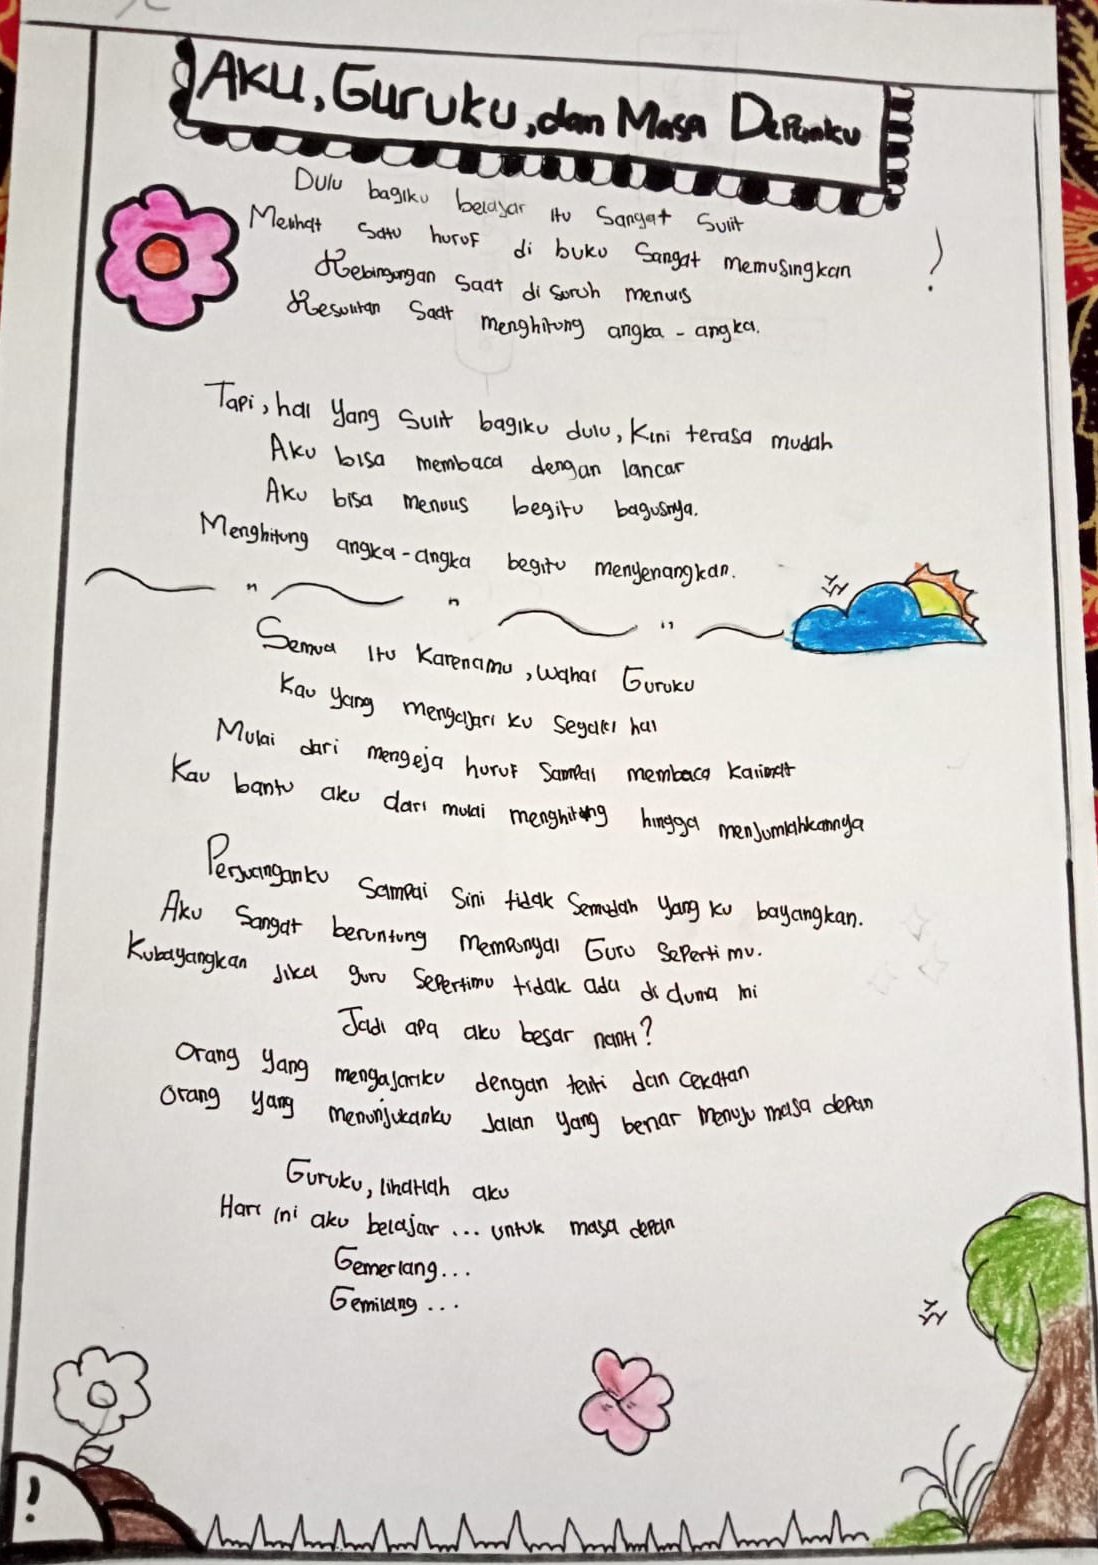 AKU, GURUKU, dan MASA DEPANKU
Dulu bagiku belajar itu sangat sulit
Melihat satu huruf di buku sangat memusingkan
Kebingungan saat di suruh menulis
Kesulitan saat menghitung angka - angka.
Tapi, hal yang sulit bagiku dulu, kini terasa mudah
Aku bisa membaca dengan lancar
Aku bisa menulis begitu bagusnya.
Menghitung angka-angka begitu menyenangkan.
Semua itu karenamu, wahai Guruku
Kau yang mengajari ku segala hal
Mulai dari mengeja huruf sampai membaca kalimat
Kau bantu aku dari mulai menghitung hingga menjumlahkannya
Perjuanganku sampai sini tidak semudah yang ku bayangkan.
Aku sangat beruntung mempunyai Guru seperti mu.
Kubayangkan jika guru sepertimu tidak ada di dunia ini
Jadi apa aku besar nanti?
Orang yang mengajariku dengan teliti dan cekatan
Orang yang menunjukanku jalan yang benar menuju masa depan
Guruku, lihatlah aku
Hari ini aku belajar ... untuk masa depan
Gemerlang...
Gemilang...